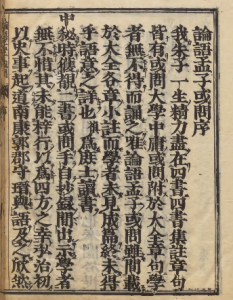 論語孟子或問序
我朱子一生精力盡在四書四書集註章句
皆有或問大學中庸或問附於大全章句學
者無不得而誦之唯論語孟子或問雖間載
於大全各章小註而學者未見成篇終未得
乎語意之詳也 爲庶士讀書
中秘時獲 二書或問手自抄錄間出示學者
無不惜其未能梓行以爲四方之幸弘治初
以史事起道南康郭郡守 與語及之欣然